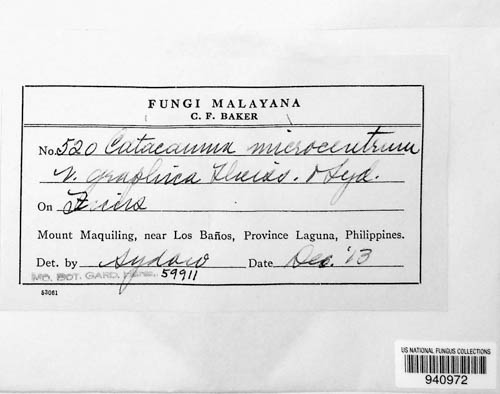 FUNGI MALAYANA
C. F. BAKER
No. 520 Catacauma microcentrum
v. graphica Theiss. & Syd.
On Ficus
Mount Maquiling, near Los Baños, Province Laguna, Philippines.
Det. by Sydow Date Dec. '13
MO. BOT. GARD. 59911
53061
US NATIONAL FUNGUS COLLECTIONS
940972